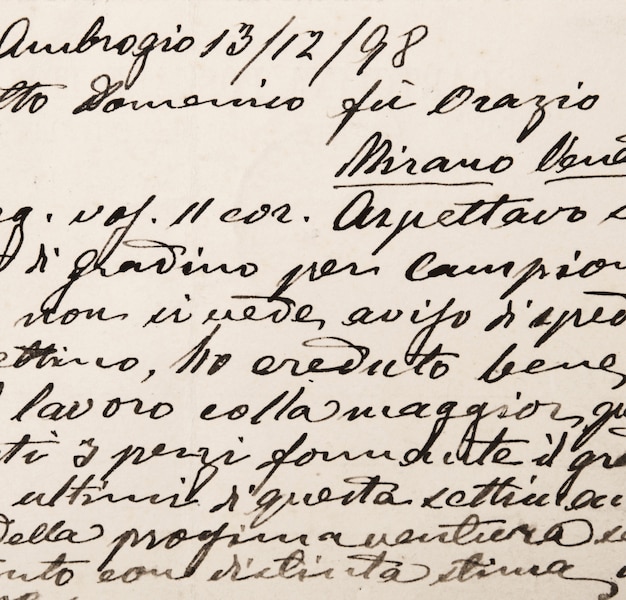 Ambrogio 13/12/98
tto Domenico fù Orazio
Mirano Vene
eg. vos. 11 cor. Aspettavo
di gradino per campion
non si vede, aviso di sped
ettino, ho creduto bene,
lavoro colla maggior,
ti 3 pezzi formante il gra
ultimi di questa settim
della prossima ventura se
nto con distinta stima